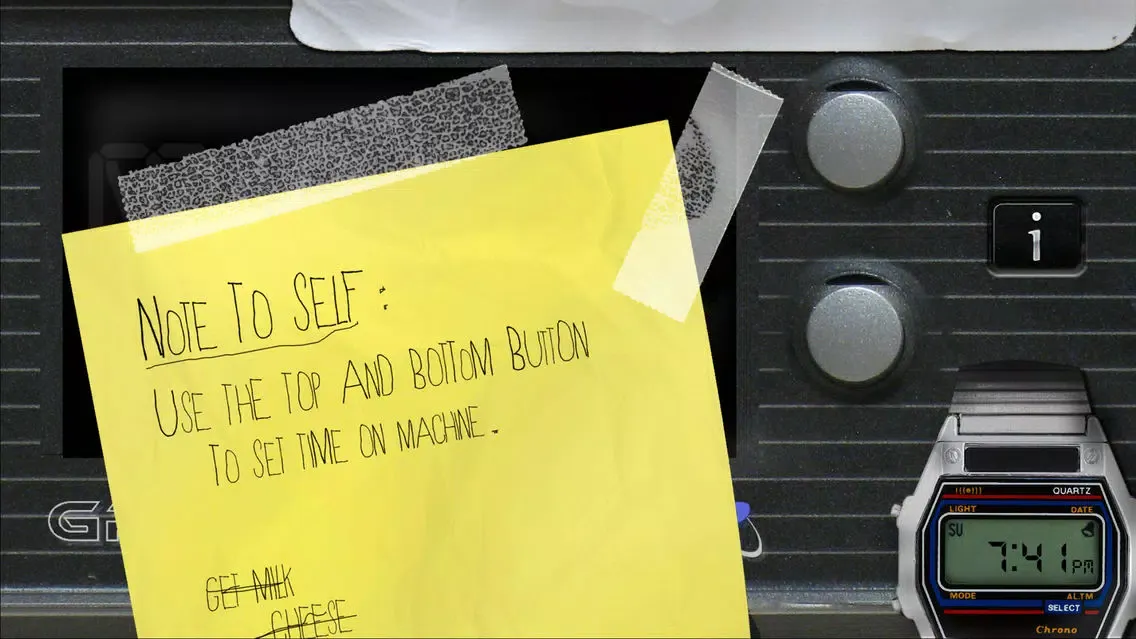 NOTE TO SELF:
USE THE TOP AND BOTTOM BUTTON
TO SET TIME ON MACHINE.
GET MILK
CHEESE
i
QUARTZ
LIGHT
DATE
SU
7:41 PM
MODE
ALTM
SELECT
Chrono